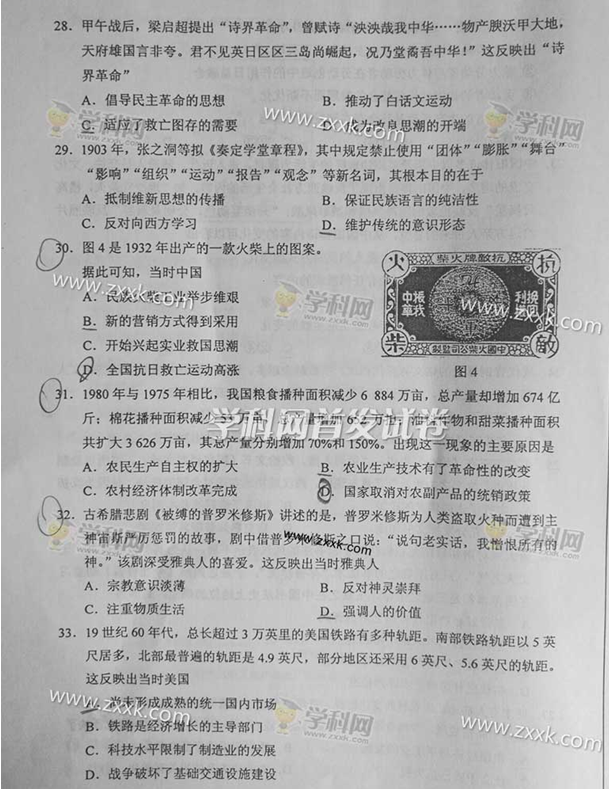 28. 甲午战后，梁启超提出“诗界革命”，曾赋诗“泱泱哉我中华……物产腴沃甲大地，
天府雄国言非夸。君不见英日区区三岛尚崛起，况乃堂矞吾中华！”这反映出“诗
界革命”
A. 倡导民主革命的思想 B. 推动了白话文运动
C. 适应了救亡图存的需要 D. 成为改良思潮的开端
29. 1903 年，张之洞等拟《奏定学堂章程》，其中规定禁止使用“团体”“膨胀”“舞台”
“影响”“组织”“运动”“报告”“观念”等新名词，其根本目的在于
A. 抵制维新思想的传播 B. 保证民族语言的纯洁性
C. 反对向西方学习 D. 维护传统的意识形态
30. 图 4 是 1932 年出产的一款火柴上的图案。
据此可知，当时中国
A. 民族火柴工业举步维艰
B. 新的营销方式得到采用
C. 开始兴起实业救国思潮
D. 全国抗日救亡运动高涨
火柴牌敌抗
火
抗
柴
敌
製監司公柴火國中
图 4
31. 1980 年与 1975 年相比，我国粮食播种面积减少 6 884 万亩，总产量却增加 674 亿
斤；棉花播种面积减少 万亩，总产量 油料作物和甜菜播种面积
共扩大 3 626 万亩，其总产量分别增加 70%和 150%。出现这一现象的主要原因是
A. 农民生产自主权的扩大 B. 农业生产技术有了革命性的改变
C. 农村经济体制改革完成 D. 国家取消对农副产品的统销政策
32. 古希腊悲剧《被缚的普罗米修斯》讲述的是，普罗米修斯为人类盗取火种而遭到主
神宙斯严厉惩罚的故事，剧中借普罗米修斯之口说：“说句老实话，我憎恨所有的
神。”该剧深受雅典人的喜爱。这反映出当时雅典人
A. 宗教意识淡薄 B. 反对神灵崇拜
C. 注重物质生活 D. 强调人的价值
33. 19 世纪 60 年代，总长超过 3 万英里的美国铁路有多种轨距。南部铁路轨距以 5 英
尺居多，北部最普遍的轨距是 4.9 英尺，部分地区还采用 6 英尺、5.6 英尺的轨距。
这反映出当时美国
A. 尚未形成成熟的统一国内市场
B. 铁路是经济增长的主导部门
C. 科技水平限制了制造业的发展
D. 战争破坏了基础交通设施建设
学科网首发试卷
学科网
zxxk.com
www.zxxk.com